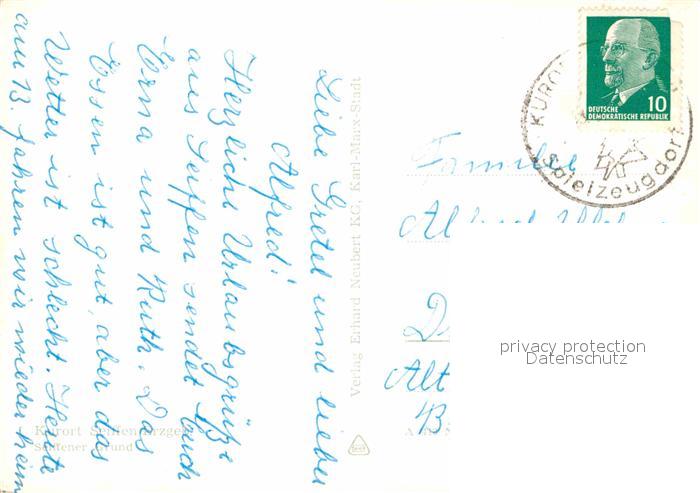 Liebe Gretel und lieber
Alfred!
Herzliche Urlaubsgrüße
aus Seiffen sendet Euch
Erna und Ruth. Das
Essen ist gut, aber das
Wetter ist schlecht. Heute
am 13. fahren wir wieder heim
Verlag Erhard Neubert KG, Karl-Marx-Stadt
Kurort Seiffen/Erzgeb.
Seiffener Grund
DEUTSCHE
DEMOKRATISCHE REPUBLIK
10
Spielzeugdorf
Familie
Alfred
D
Alt
privacy protection
Datenschutz